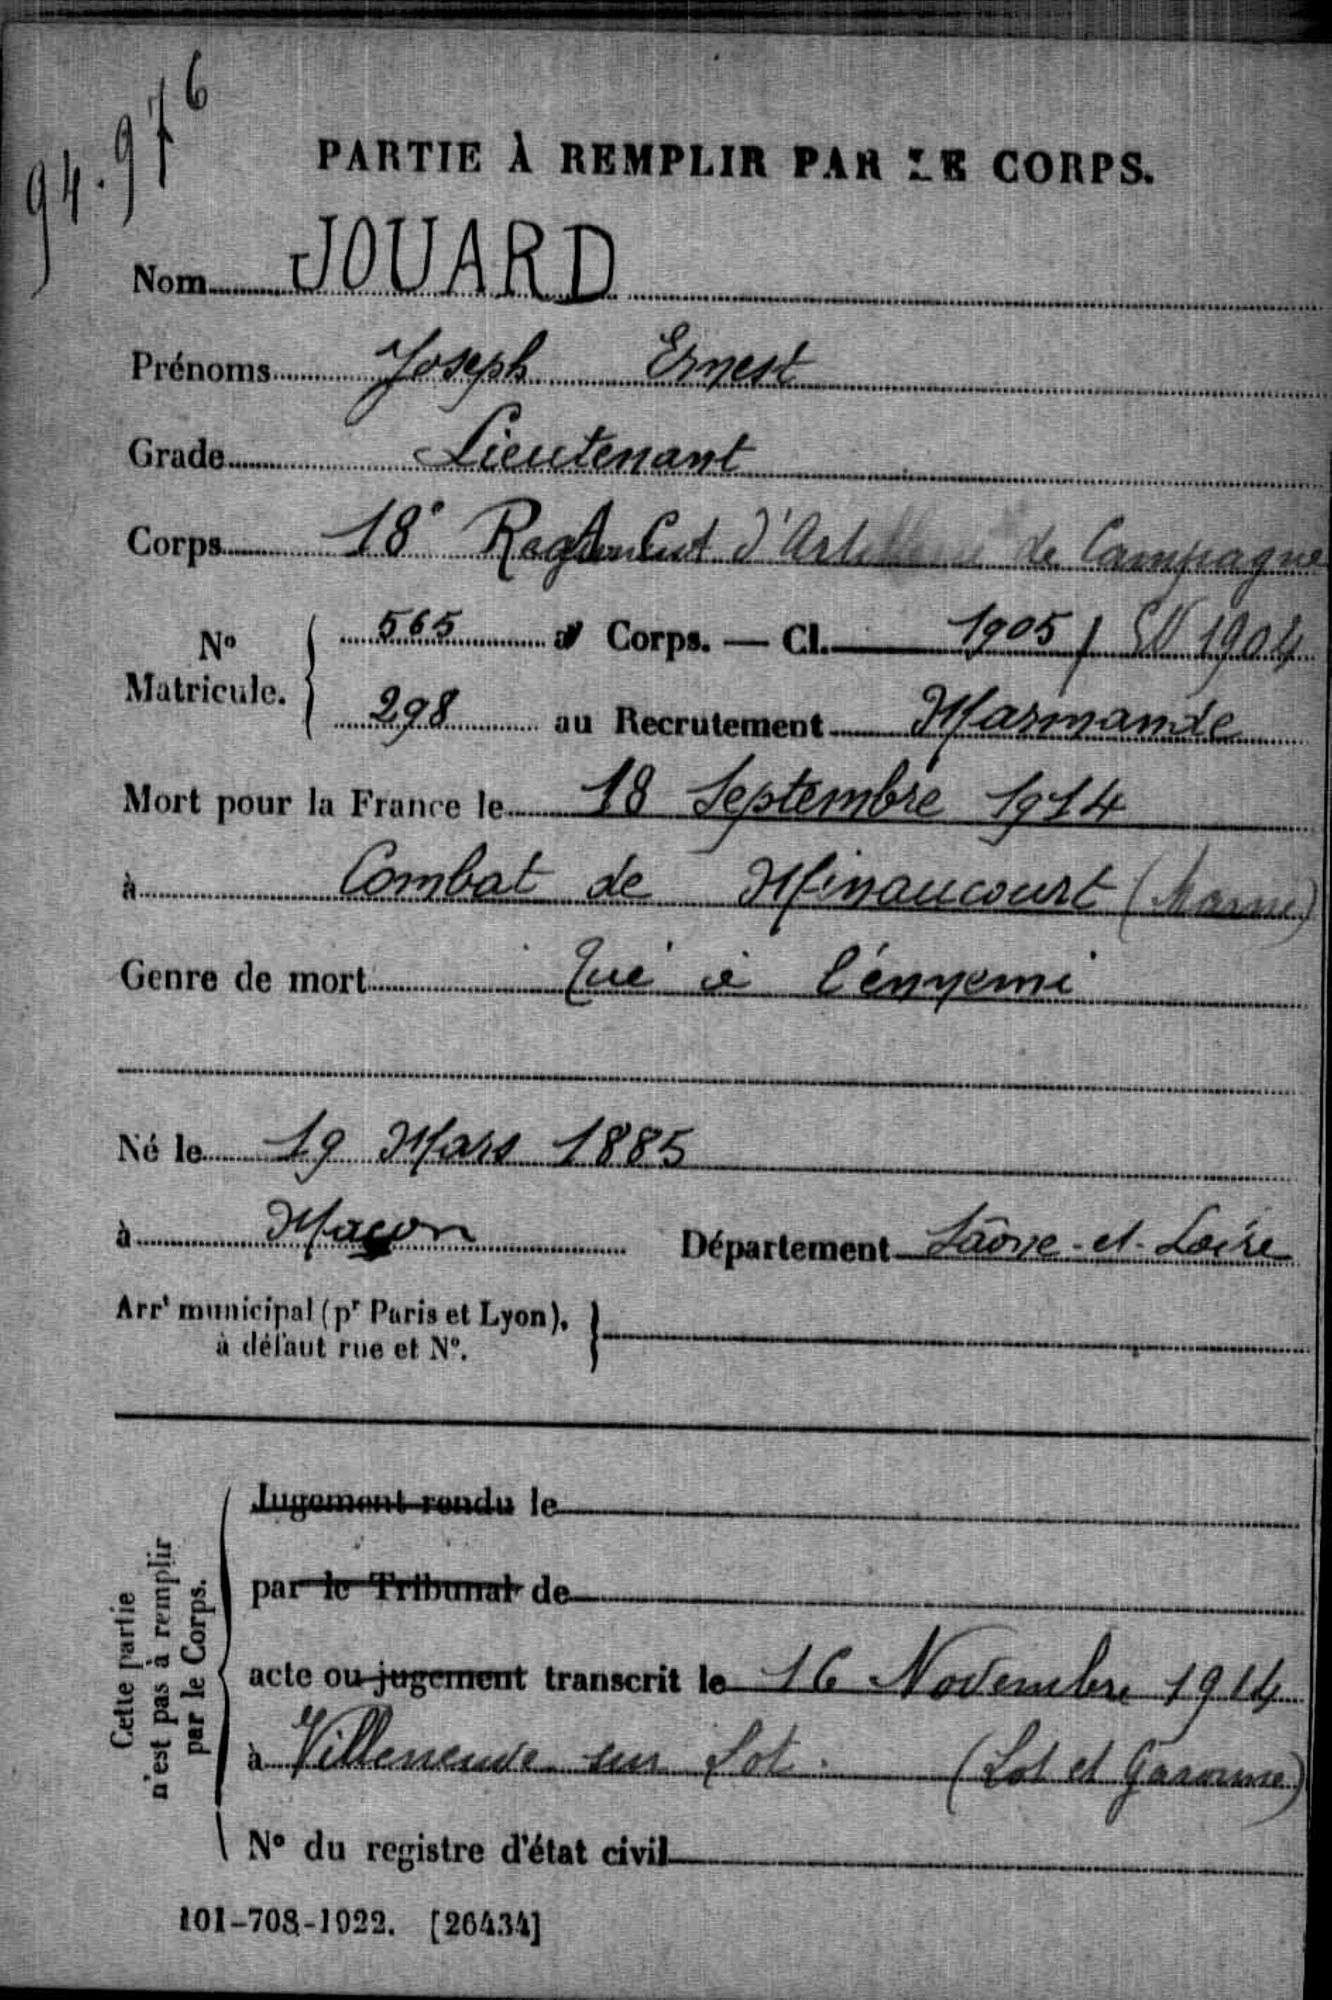 94.976
PARTIE À REMPLIR PAR LE CORPS.
Nom JOUARD
Prénoms Joseph Ernest
Grade Lieutenant
Corps 18e Régiment d'Artillerie de Campagne
No Matricule. { 565 au Corps. — Cl. 1905 / 1904
298 au Recrutement Marmande
Mort pour la France le 18 Septembre 1914
à Combat de Minaucourt (Marne)
Genre de mort Tué à l'ennemi
Né le 19 Mars 1885
à Maçon Département Saône-et-Loire
Arrt municipal (pr Paris et Lyon), }
à défaut rue et No.
Cette partie n'est pas à remplir par le Corps.
Jugement rendu le
par le Tribunal de
acte ou jugement transcrit le 16 Novembre 1914
à Villeneuve sur Lot. (Lot et Garonne)
No du registre d'état civil
101-708-1922. [26434]